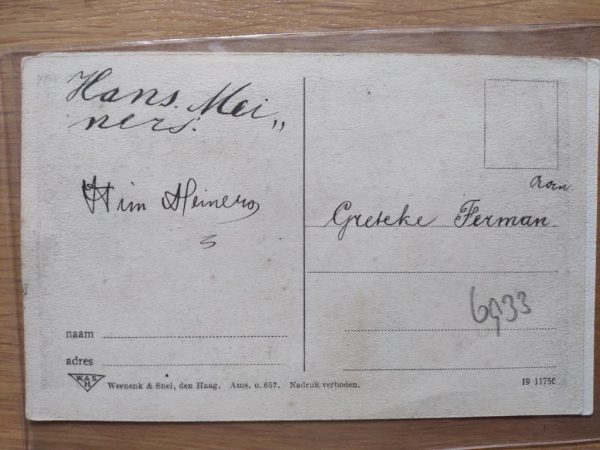 Hans. Mei„
ners.
Wim Meiners
Aan.
Greteke Ferman
6933
naam
adres
W.&S.
H
Weenenk & Snel, den Haag. Ams. o. 657. Nadruk verboden.
19 11756